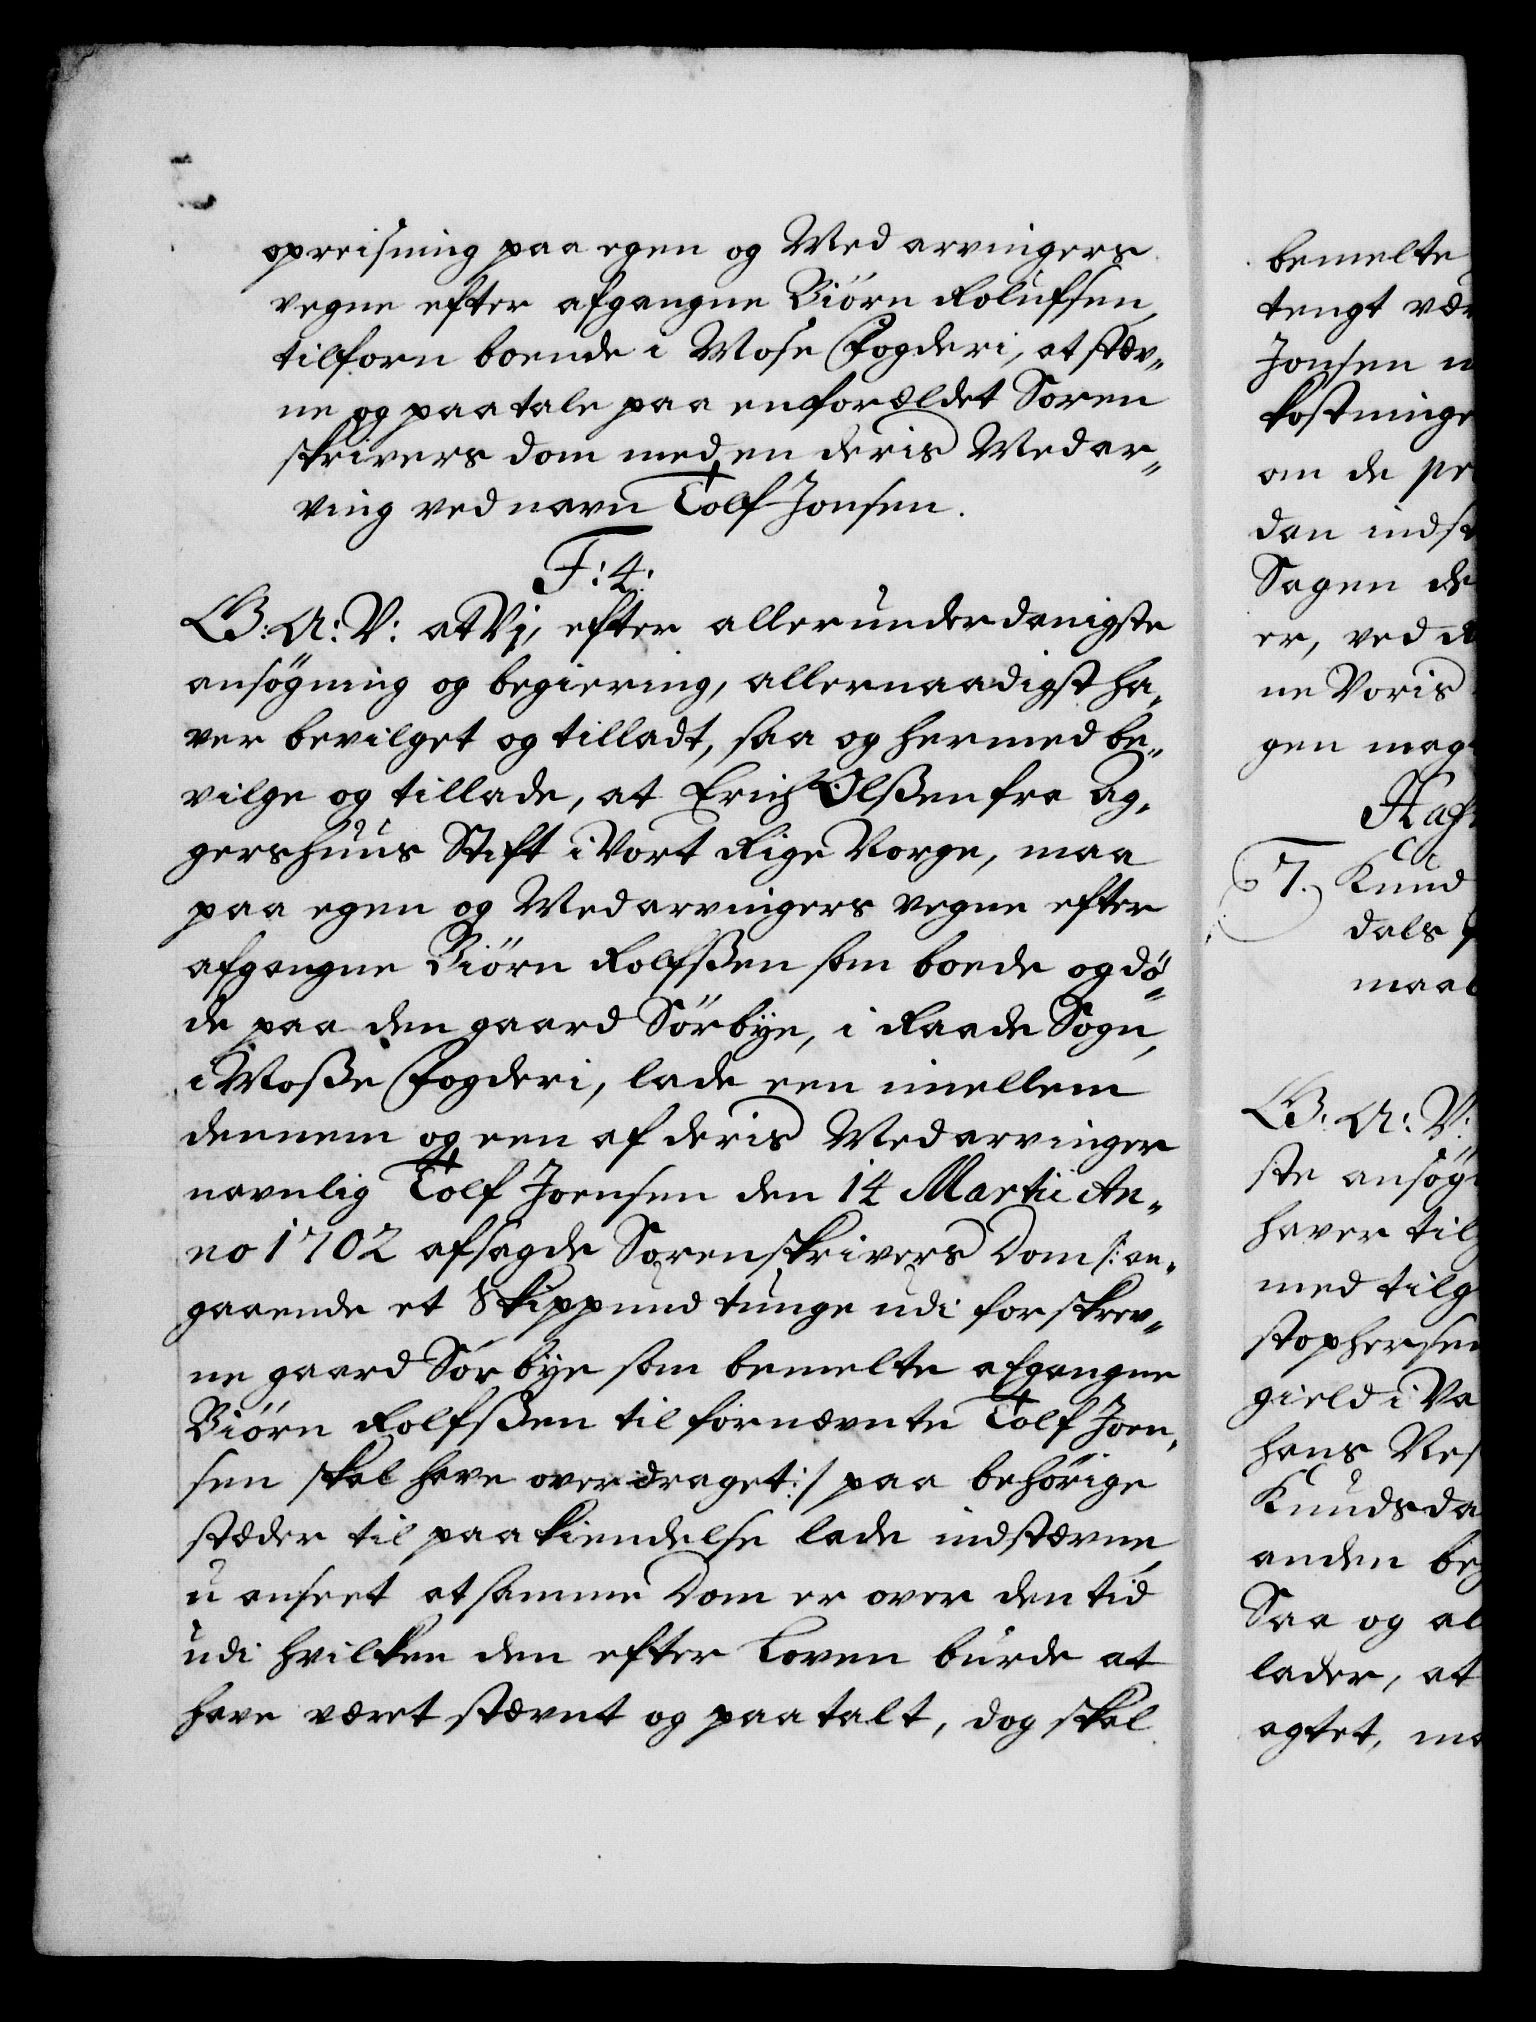 opreisning paa egen og Medarvingers
vegne efter afgangne Biörn Rolufsen,
tilforn boende i Mose Fogderi, at stæv„
ne og paatale paa en forældet Soren
skrivers dom med en deris Medar„
ving ved navn Tolf Jonsen.
F: 4:
G: A: V: at Vj, efter allerunderdanigste
ansögning og begiering, allernaadigst ha„
ver bevilget og tilladt, saa og hermed be„
vilge og tillade, at Erich Olssen fra Ag„
gershuus Stift i Vort Rige Norge, maa
paa egen og Medarvingers vegne efter
afgangne Biörn Rolfssen som boede og dö„
de paa den gaard Sörbye, i Raade Sogn,
i Mosse Fogderi, lade een imellem
dennem og een af deris Medarvinger
navnlig Tolf Joensen den 14 Martii An„
no 1702 afsagde Sorenskrivers Dom /: an„
gaaende et Skippund tunge udi forskrev„
ne gaard Sörbye som bemelte afgangne
Biörn Rolfssen til fornævnte Tolf Joen„
sen skal have overdraget :/ paa behörige
stæder til paakiendelse lade indstævne,
uanseet at samme Dom er over den tid
udi hvilken den efter Loven burde at
have været stævnt og paatalt, dog skal
bemelte
tengt vær
Jonsen u
kostninge
om de pr
dan indst
Sagen de
er, ved
ne Voris
gen mag
Haf
7. Knud
dals
maal
G: A: V:
ste ansög
haver tilg
med tilg
stophersen
gield i Va
hans Res
Knudsda
anden be
Saa og al
lader, at
agtet, ma